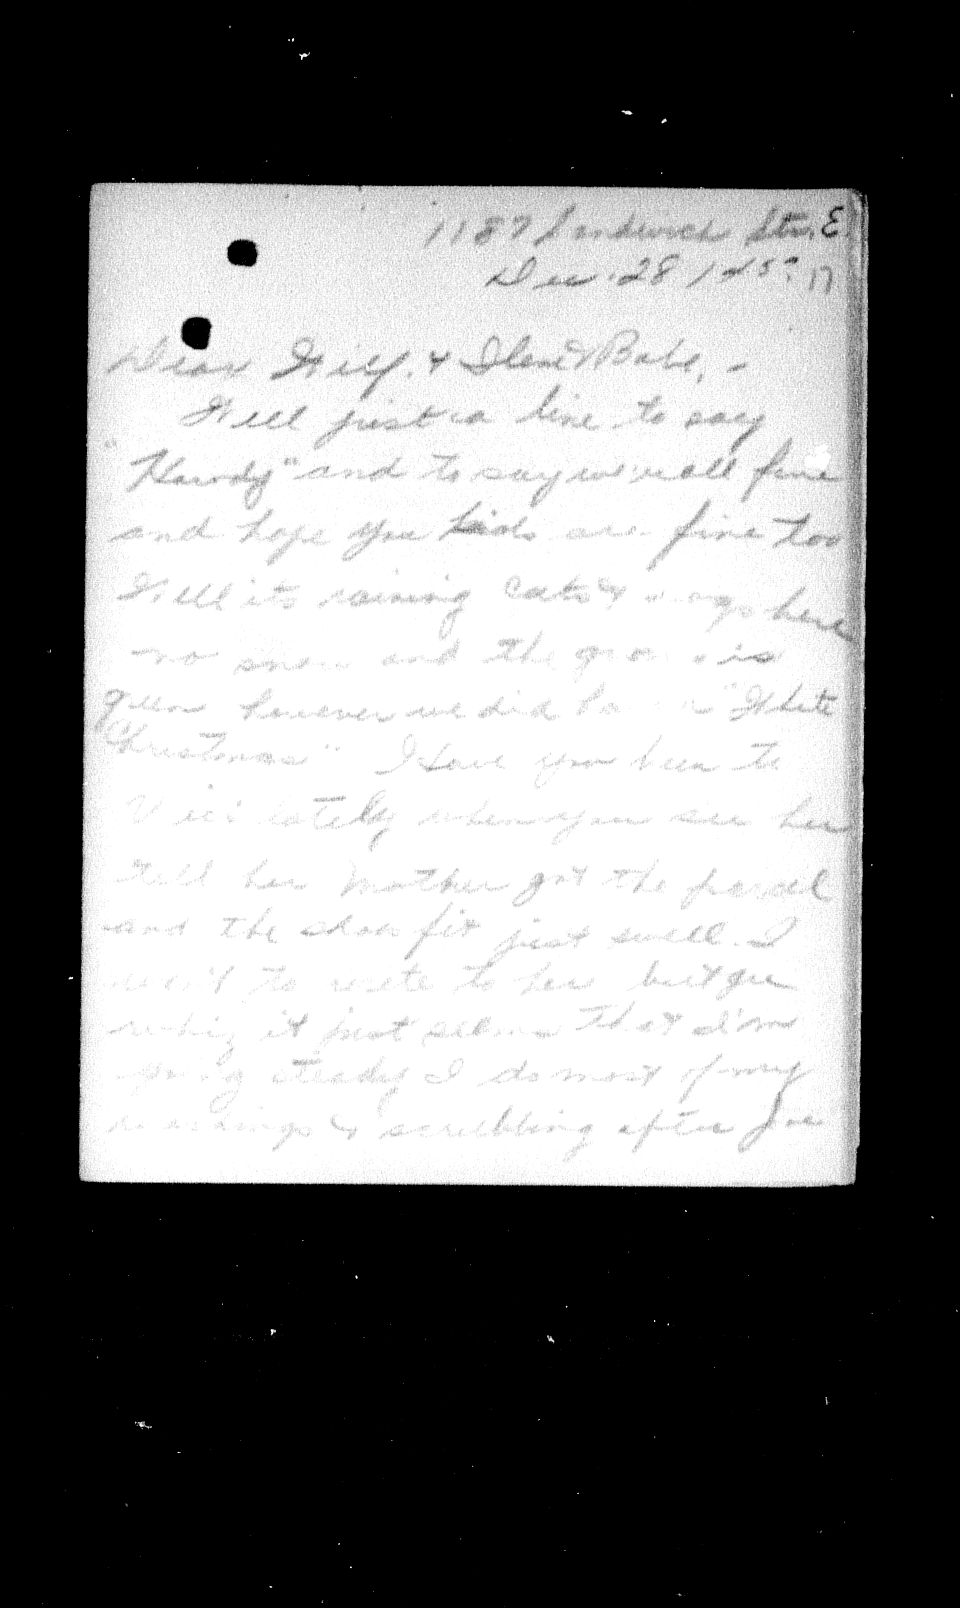 1187 Sandwich Str. E.
Dec. 28
Dear Wilf. & Ilene & Babe, -
Well just a line to say
"Howdy" and to say we're all fine
and hope you kids are fine too
Well its raining cats & dogs here
no snow and the is
green however we did "White
Christmas" Have you been to
Vi's lately when you see her
tell her Mother got the parcel
and the shoes fit just swell. I
meant to write to her but gee
whiz it just seems that I'm
going steady I do most of my
& scrubbing after